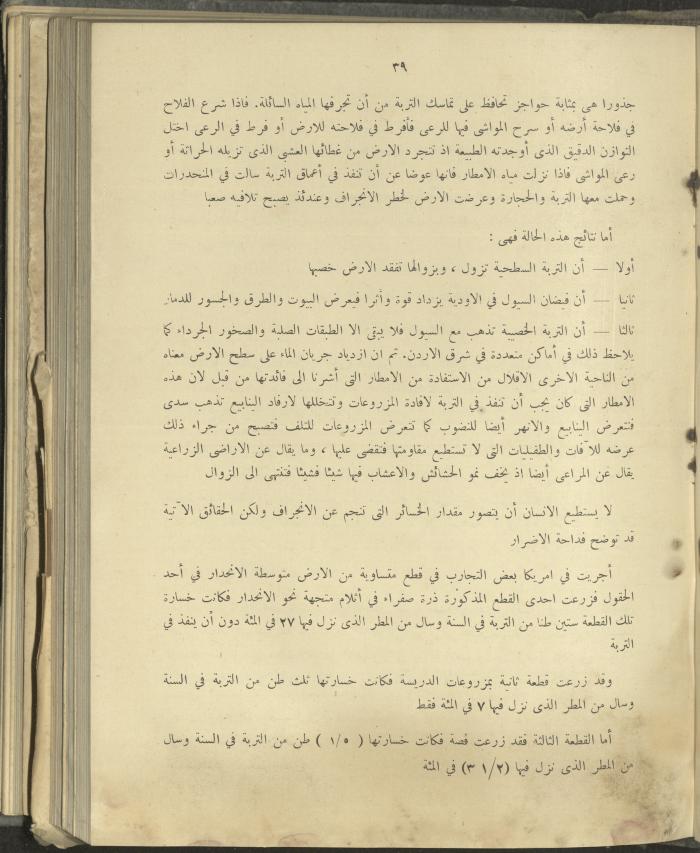 ٣٩
جذورا هى بمثابة حواجز تحافظ على تماسك التربة من أن تجرفها المياه السائلة. فاذا شرع الفلاح
فى فلاحة أرضه أو سرح المواشى فيها للرعى فأفرط فى فلاحته للارض أو فرط في الرعى اختل
التوازن الدقيق الذى أوجدته الطبيعة اذ تتجرد الارض من غطائها العشبى الذى تزيله الحراثة أو
رعى المواشى فاذا نزلت مياه الامطار فانها عوضا عن أن تنفذ فى أعماق التربة سالت في المنحدرات
وحملت معها التربة والحجارة وعرضت الارض لخطر الانجراف وعندئذ يصبح تلافيه صعبا
أما نتائج هذه الحالة فهى :
أولا — أن التربة السطحية تزول ، وبزوالها تفقد الارض خصبها
ثانيا — أن فيضان السيول في الاودية يزداد قوة وأثرا فيعرض البيوت والطرق والجسور للدمار
ثالثا — أن التربة الخصيبة تذهب مع السيول فلا يبقى الا الطبقات الصلبة والصخور الجرداء كما
يلاحظ ذلك في أماكن متعددة في شرق الاردن. ثم ان ازدياد جريان الماء على سطح الارض معناه
من الناحية الاخرى الاقلال من الاستفادة من الامطار التى أشرنا الى فائدتها من قبل لان هذه
الامطار التى كان يجب أن تنفذ في التربة لافادة المزروعات وتتخللها لارفاد الينابيع تذهب سدى
فتتعرض الينابيع والانهر أيضا للنضوب كما تتعرض المزروعات للتلف فتصبح من جراء ذلك
عرضه للآفات والطفيليات التى لا تستطيع مقاومتها فتقضى عليها ، وما يقال عن الاراضى الزراعية
يقال عن المراعى أيضا اذ يخف نمو الحشائش والاعشاب فيها شيئا فشيئا فتنتهى الى الزوال
لا يستطيع الانسان أن يتصور مقدار الخسائر التى تنجم عن الانجراف ولكن الحقائق الآتية
قد توضح فداحة الاضرار
أجريت في امريكا بعض التجارب في قطع متساوية من الارض متوسطة الانحدار في أحد
الحقول فزرعت احدى القطع المذكورة ذرة صفراء في أتلام متجهة نحو الانحدار فكانت خسارة
تلك القطعة ستين طنا من التربة في السنة وسال من المطر الذى نزل فيها ٢٧ في المئة دون أن ينفذ في
التربة
وقد زرعت قطعة ثانية بمزروعات الدريسة فكانت خسارتها ثلث طن من التربة في السنة
وسال من المطر الذى نزل فيها ٧ في المئة فقط
أما القطعة الثالثة فقد زرعت فصة فكانت خسارتها ( ١/٥ ) طن من التربة في السنة وسال
من المطر الذى نزل فيها (٣ ١/٢) في المئة